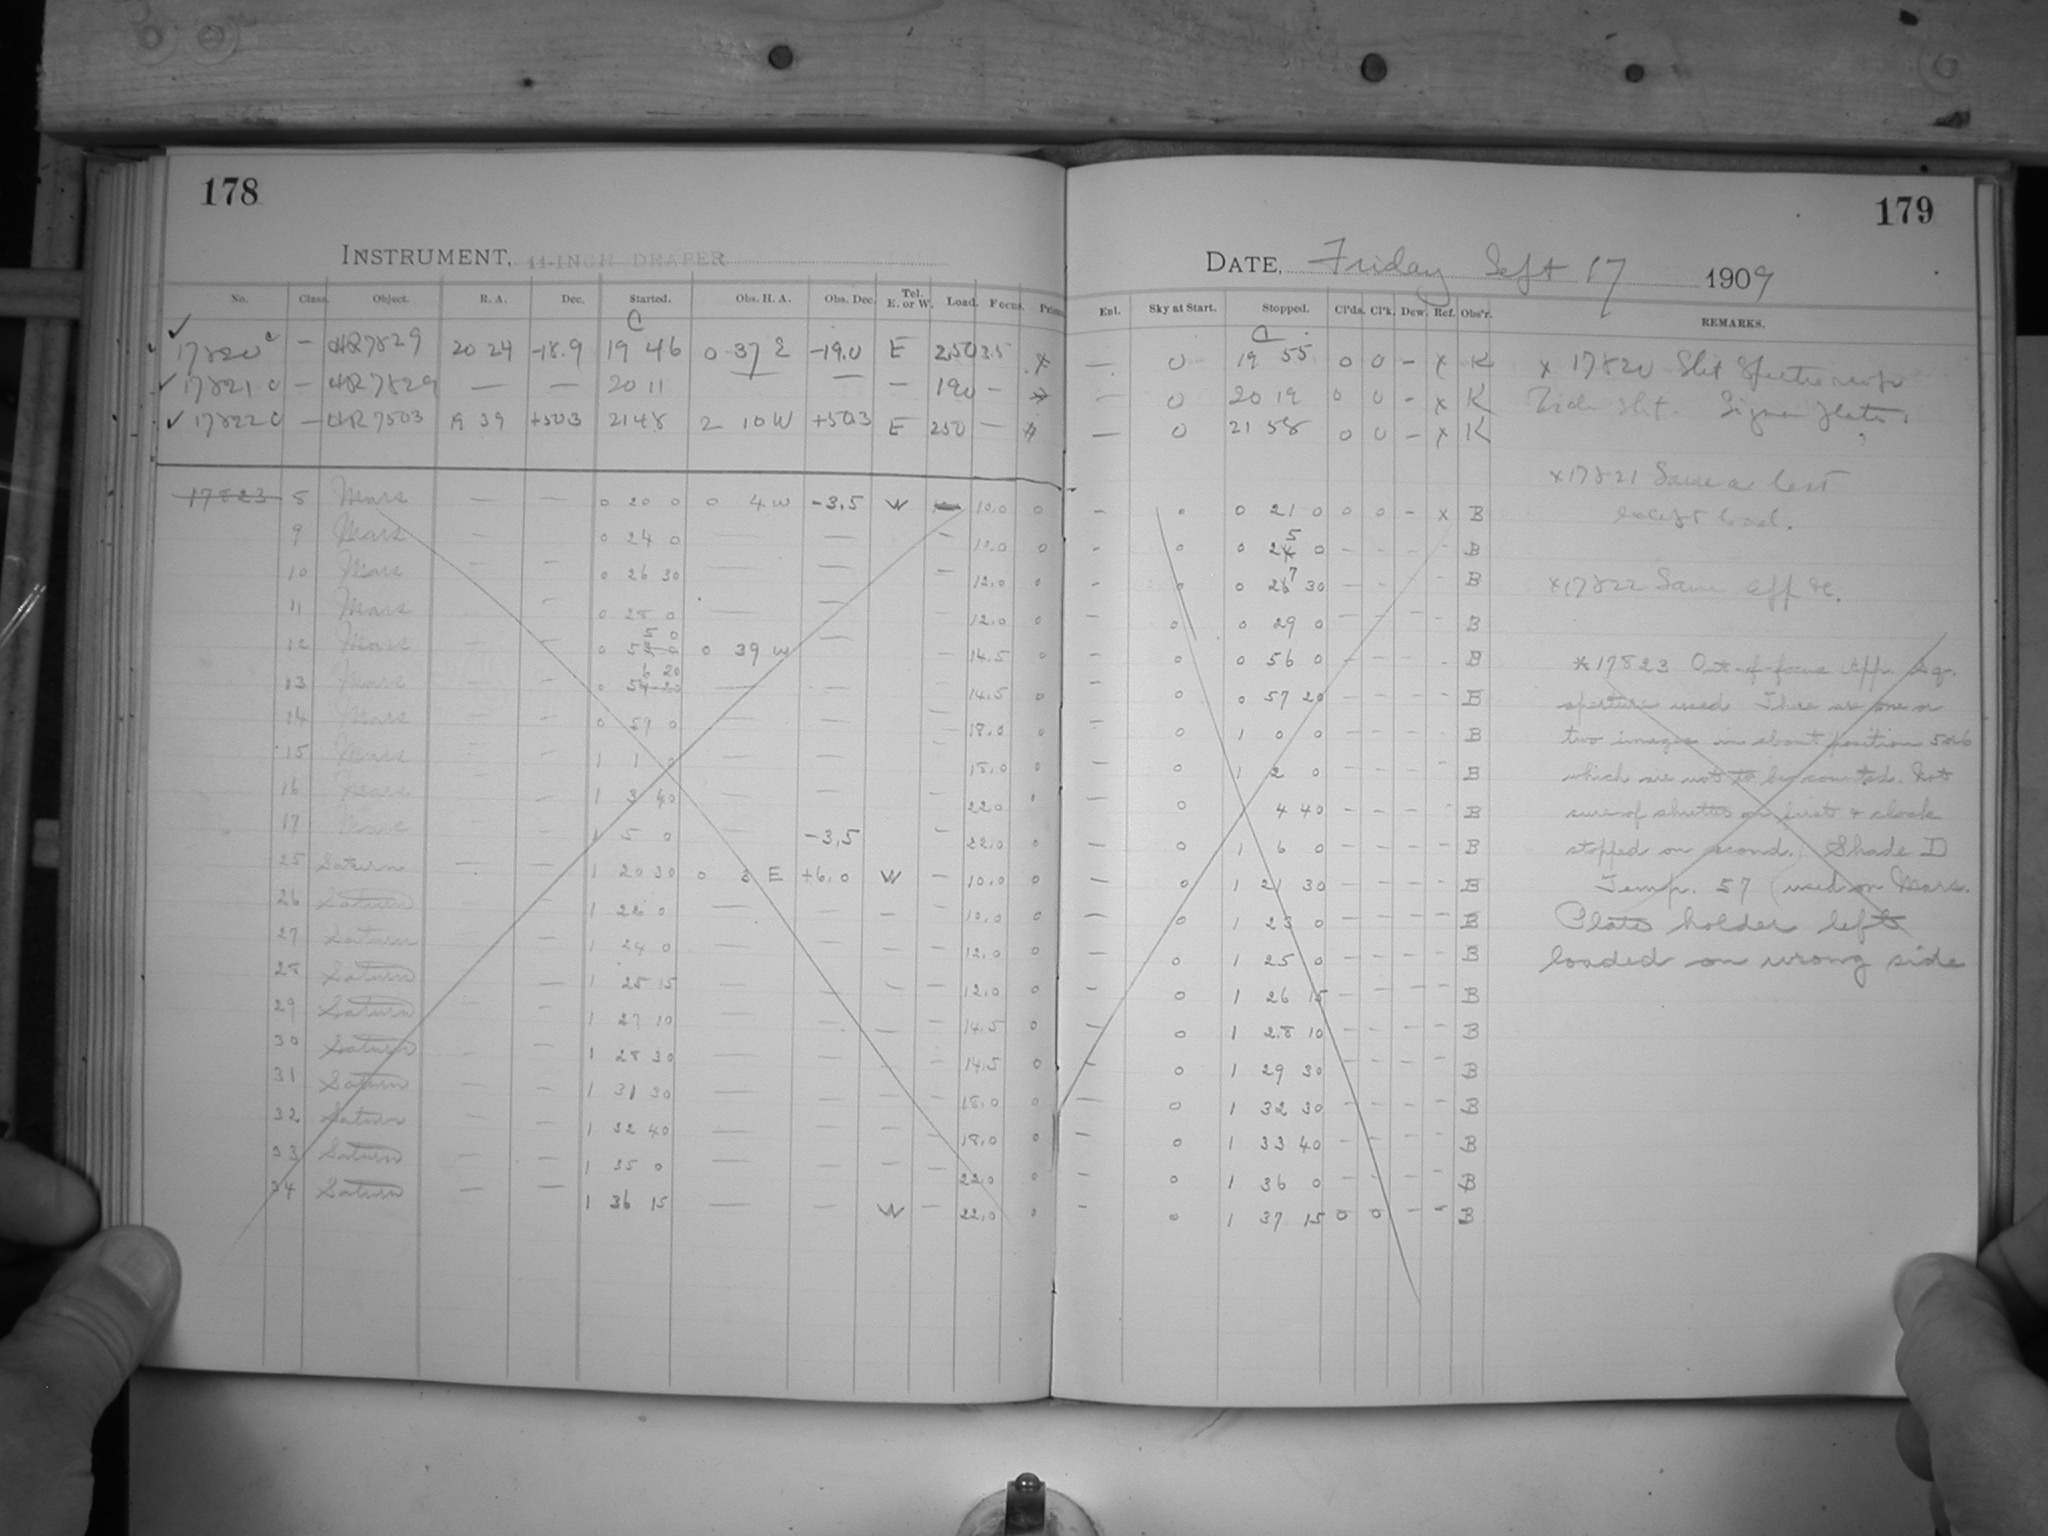 178
179
INSTRUMENT, 11-INCH DRAPER
DATE, Friday Sept 17 1909
No. Class. Object. R. A. Dec. Started. Obs. H. A. Obs. Dec. Tel. E. or W. Load. Focus. Prism.
Enl. Sky at Start. Stopped. Cl'ds. Cl'k. Dew. Ref. Obs'r. REMARKS.
C
C
✓ 17820 c — HR 7829 20 24 -18.9 19 46 0 37 E -19.0 E 250 3.5 x — 0 19 55 0 0 - x K
✓ 17821 c — HR 7829 — — 20 11 — — — 190 — — 0 20 19 0 0 - x K
✓ 17822 c — HR 7503 19 39 +50.3 21 48 2 10 W +50.3 E 250 — — 0 21 58 0 0 - x K
17823 8 Mars — — 0 20 0 0 4 W -3.5 W — 10.0 0 - 0 0 21 0 0 0 - x B
9 Mars — 0 24 0 — — — 10.0 0 - 0 0 25 0 - - - - B
10 Mars — — 0 26 30 — — — 12.0 0 - 0 0 27 30 - - - B
11 Mars — — 0 28 0 — — 12.0 0 - 0 0 29 0 - - - B
12 Mars — — 0 55 0 0 39 W — — 14.5 0 - 0 0 56 0 - - - - B
13 Mars — — 0 56 20 — — — 14.5 0 - 0 0 57 20 - - - - B
14 Mars — — 0 59 0 — — — 18.0 0 - 0 1 0 0 - - - - B
15 Mars — — 1 1 0 — — — 18.0 0 - 0 1 2 0 - - - - B
16 Mars — — 1 3 40 — — — 22.0 - 0 4 40 - - - - B
17 Mars — — 1 5 0 — -3.5 — 22.0 0 - 0 1 6 0 - - - - B
25 Saturn — — 1 20 30 0 3 E +6.0 W — 10.0 0 - 0 1 21 30 - - - - B
26 Saturn — — 1 22 0 — — — — 10.0 0 - 0 1 23 0 - - - - B
27 Saturn — — 1 24 0 — — — — 12.0 0 - 0 1 25 0 - - - - B
28 Saturn — — 1 25 15 — — — — 12.0 0 - 0 1 26 15 - - - - B
29 Saturn — — 1 27 10 — — — — 14.5 0 - 0 1 28 10 - - - - B
30 Saturn — — 1 28 30 — — — — 14.5 0 - 0 1 29 30 - - - - B
31 Saturn — — 1 31 30 — — — — 18.0 0 - 0 1 32 30 - - - - B
32 Saturn — — 1 32 40 — — — — 18.0 0 - 0 1 33 40 - - - - B
33 Saturn — — 1 35 0 — — — — 22.0 0 - 0 1 36 0 - - - - B
34 Saturn — — 1 36 15 — — W — 22.0 0 - 0 1 37 15 0 0 - - B
x 17820 Slit Spectroscope
Wide slit. Sigma plate.
x 17821 Same as last
except load.
x 17822 Same app &c.
* 17823 Out-of-focus App. Sq.
aperture used There are one or
two images in about position 5 or 6
which are not to be counted. Not
sure of shutter on first & clock
stopped on second. Shade D
Temp. 57 (used on Mars.
Plate holder left
loaded on wrong side